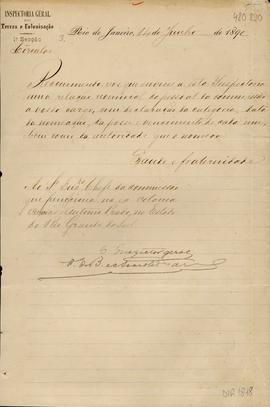 INSPECTORIA GERAL
DE
Terras e Colonisação
1ª Secção
Circular
480 880
Rio de Janeiro, 14 de Junho de 1890
Recommendo-vos que envieis a esta Inspectoria
uma relação nominal do pessoal da commissão
a vosso cargo, com declaração da categoria, data
da nomeação, da posse e vencimento de cada um,
bem como da autoridade que o nomeou.
Saude e fraternidade
Ao Sr. Engº Chefe da commissão
que funcciona na ex colonia
Antonio Prado, no Estado
do Rio Grande do Sul
O Inspector geral